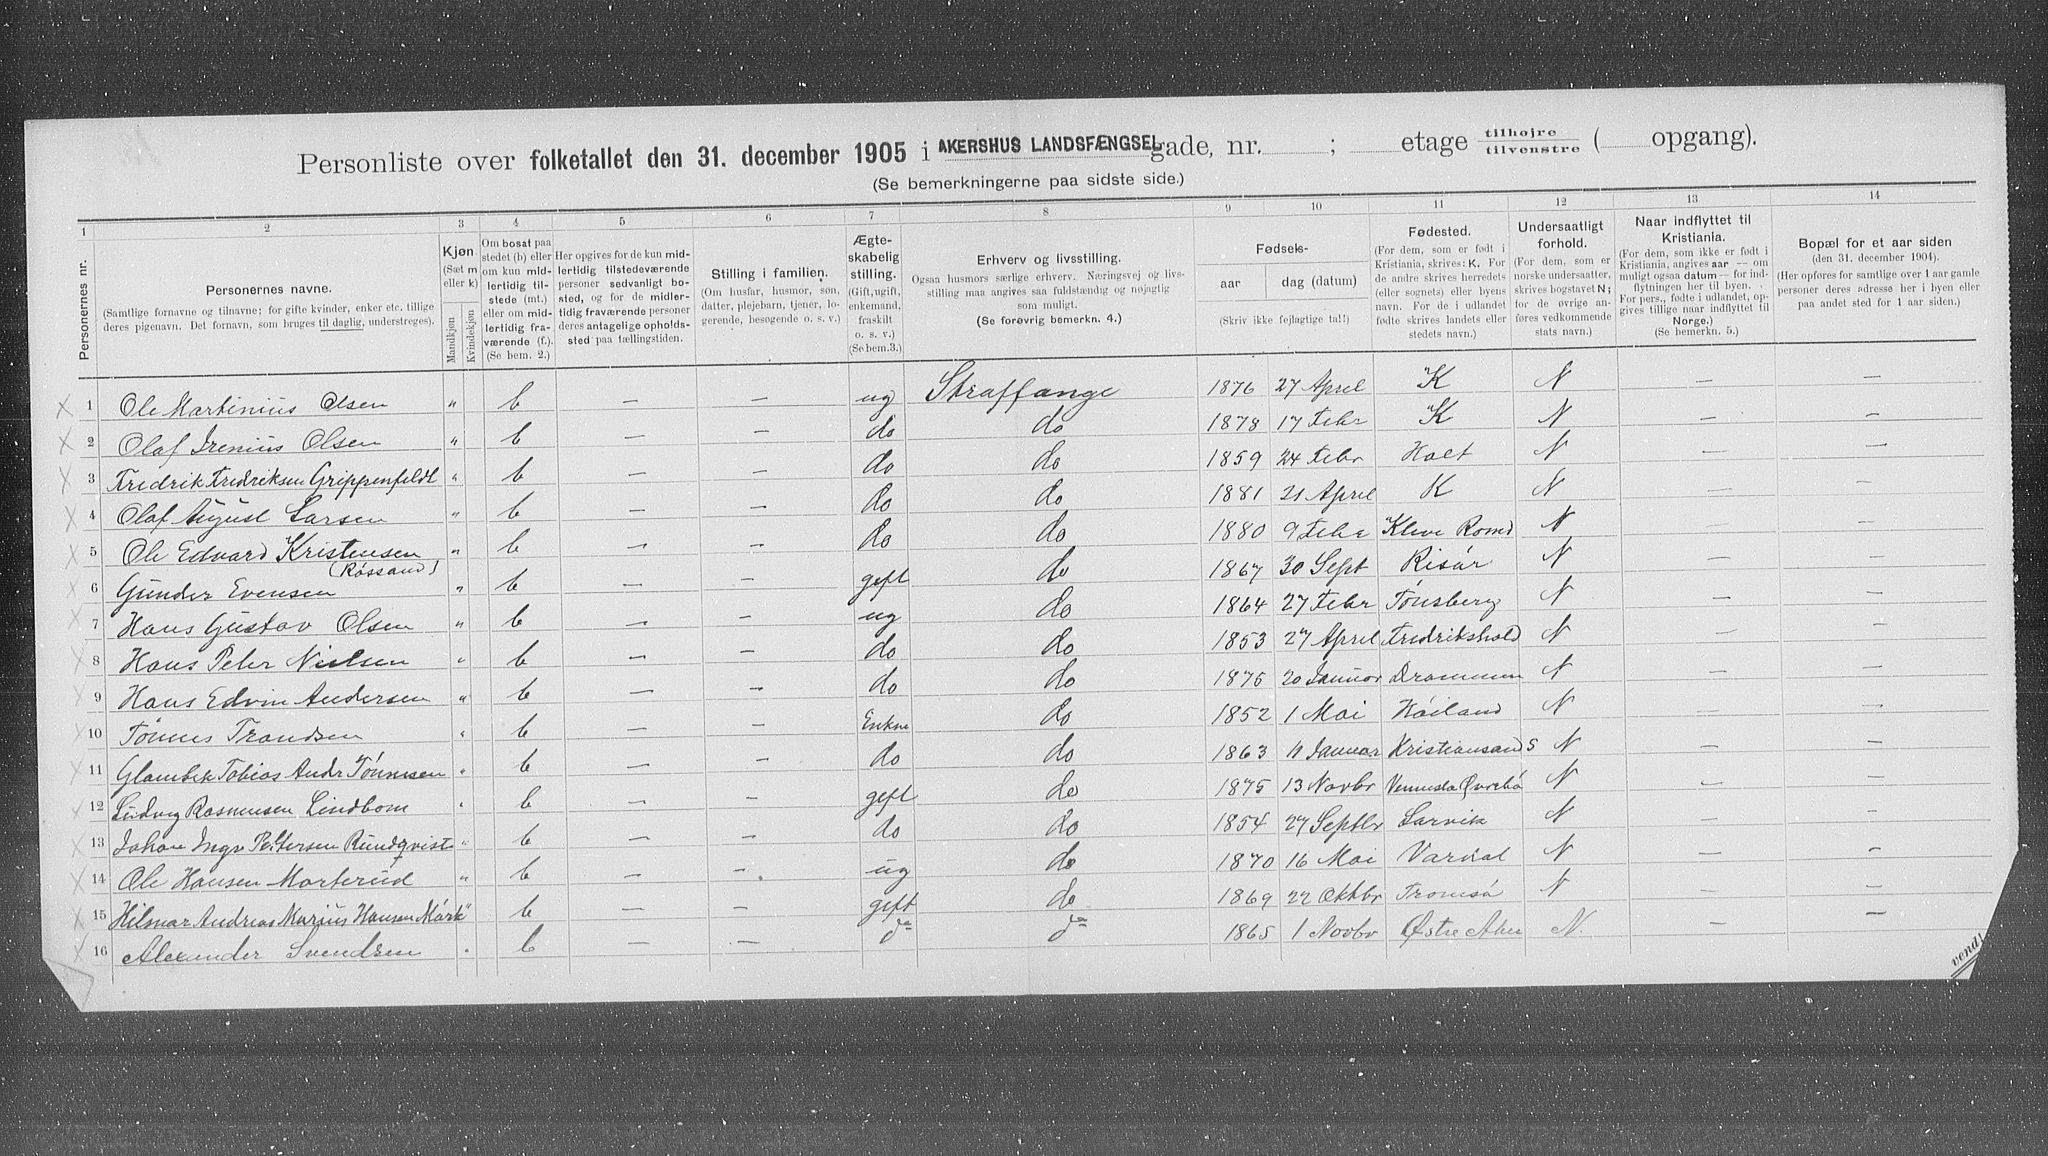 Personliste over folketallet den 31. december 1905 i AKERSHUS LANDSFÆNGSEL gade, nr. ; etage tilhøjre / tilvenstre ( opgang).
(Se bemerkningerne paa sidste side.)
1 2 3 4 5 6 7 8 9 10 11 12 13 14
Personernes nr.
Personernes navne.
(Samtlige fornavne og tilnavne; for gifte kvinder, enker etc. tillige
deres pigenavn. Det fornavn, som bruges til daglig, understreges).
Kjøn
(Sæt m
eller k)
Mandkjøn
Kvindekjøn
Om bosat paa
stedet (b) eller
om kun mid-
lertidig til-
stede (mt.)
eller om mid-
lertidig fra-
værende (f.).
(Se bem. 2.)
Her opgives for de kun mid-
lertidig tilstedeværende
personer sedvanligt bo-
sted, og for de midler-
tidig fraværende personer
deres antagelige opholds-
sted paa tællingstiden.
Stilling i familien.
(Om husfar, husmor, søn,
datter, plejebarn, tjener, lo-
gerende, besøgende o. s. v.)
Ægte-
skabelig
stilling.
(Gift, ugift,
enkemand,
fraskilt
o. s. v.)
(Se bem.3.)
Erhverv og livsstilling.
Ogsaa husmors særlige erhverv. Næringsvej og livs-
stilling maa angives saa fuldstændig og nøjagtig
som muligt.
(Se forøvrig bemerkn. 4.)
Fødsels-
aar dag (datum)
(Skriv ikke fejlagtige tal!)
Fødested.
(For dem, som er født i
Kristiania, skrives: K. For
de andre skrives herredets
(eller sognets) eller byens
navn. For de i udlandet
fødte skrives landets eller
stedets navn.)
Undersaatligt
forhold.
(For dem, som er
norske undersaatter,
skrives bogstavet N;
for de øvrige an-
føres vedkommende
stats navn.)
Naar indflyttet til
Kristiania.
(For dem, som ikke er født i
Kristiania, angives aar — om
muligt ogsaa datum — for ind-
flytningen her til byen.
For pers., fødte i udlandet, op-
gives tillige naar indflyttet til
Norge.)
(Se bemerkn. 5.)
Bopæl for et aar siden
(den 31. december 1904).
(Her opføres for samtlige over 1 aar gamle
personer deres adresse her i byen eller
paa andet sted for 1 aar siden.)
1 Ole Martinius Olsen " b — — ug Straffange 1876 27 April K N — —
2 Olaf Irenius Olsen " b — — do do 1878 17 Febr K N — —
3 Fredrik Fredriksen Grippenfeldt " b — — do do 1859 24 Febr Holt N — —
4 Olaf August Larsen " b — — do do 1881 21 April K N — —
5 Ole Edvard Kristensen " b — — do do 1880 9 Febr Kleve Romd N — —
(Rössand)
6 Gunder Evensen " b — — gift do 1867 30 Sept Risör N — —
7 Hans Gustav Olsen " b — — ug do 1864 27 Febr Tönsberg N — —
8 Hans Peter Nielsen " b — — do do 1853 27 April Fredrikshald N — —
9 Hans Edvin Andersen " b — — do do 1876 20 Januar Drammen N — —
10 Tönnes Trondsen " b — — Enkm do 1852 1 Mai Höiland N — —
11 Tobias Andr Tönnesen " b — — do do 1863 11 Januar Kristiansand S N — —
12 Ludvig Rasmussen Lindbom " b — — gift do 1875 13 Novbr Vennesla Øvrebö N — —
13 Johan Ingv Pettersen Rundqvist " b — — do do 1854 27 Septbr Larvik N — —
14 Ole Hansen Morterud " b — — ug do 1870 16 Mai Vardal N — —
15 Hilmar Andreas Marius Hansen Mörk " b — — gift do 1869 22 Oktbr Tromsö N — —
16 Alexander Svendsen " b — — do do 1865 1 Novbr Østre Aker N. — —
vend!